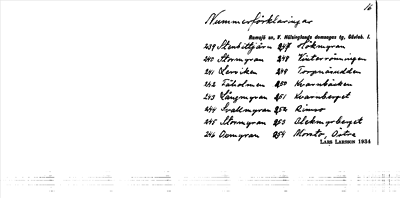 16
Nummerförklaringar
Ramsjö sn, V. Hälsinglands domsagas tg, Gävleb. l.
239 Stenbittjärn 247 Hökmyran
240 Stormyran 248 Vinterrönningen
241 Lerviken 249 Torpnäsudden
242 Fäholmen 250 Kvarnbäcken
243 Långmyran 251 Kvarnberget
244 Svallmyran 252 Rimso
245 Stormyran 253 Alckmyrberget
246 Oxmyran 254 Morsto, Östra
Lars Larsson 1934